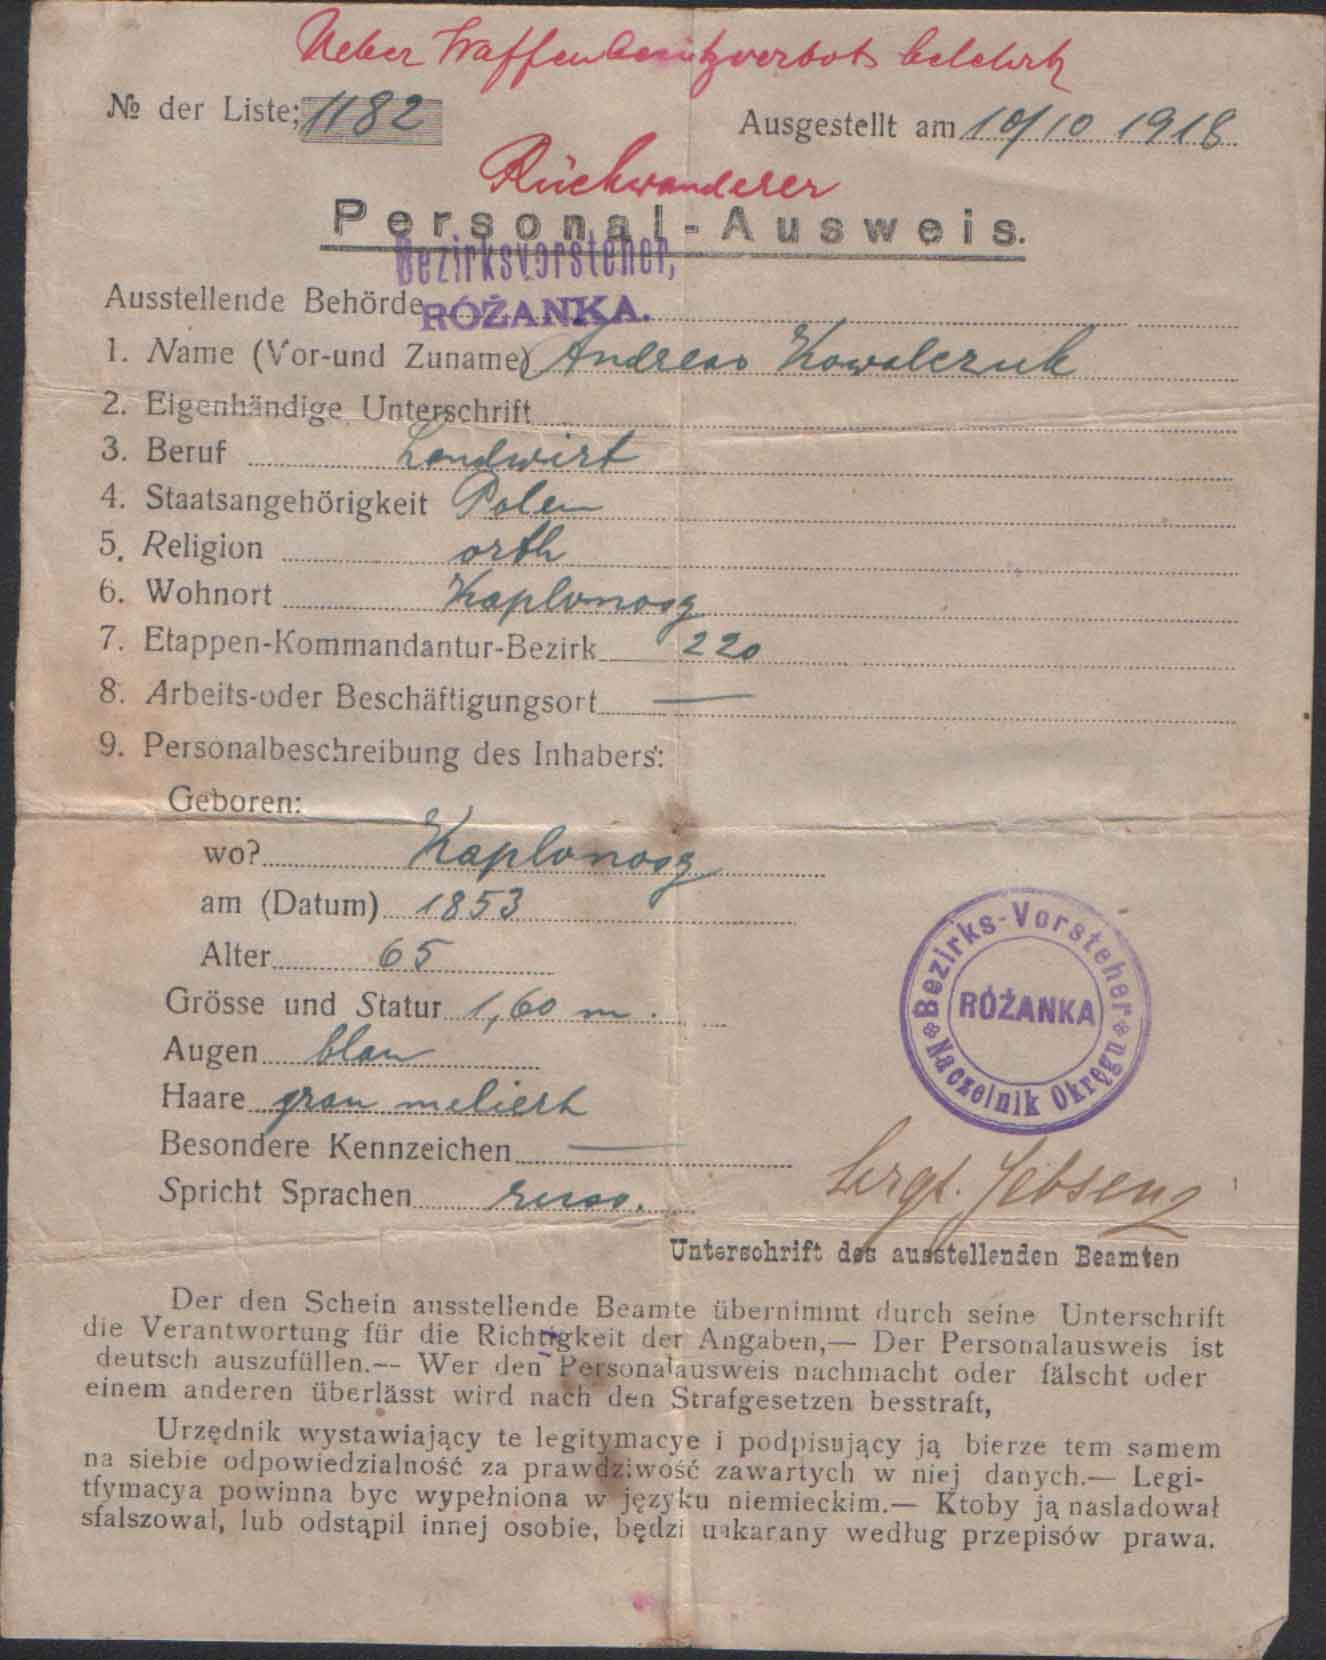 Ueber Waffenbesitzverbots belehrt
№ der Liste; 1182
Ausgestellt am 10/10 1918
Rückwanderer
Personal-Ausweis.
Bezirksvorsteher,
Ausstellende Behörde RÓŻANKA.
1. Name (Vor-und Zuname) Andreas Kowalczuk
2. Eigenhändige Unterschrift
3. Beruf Landwirt
4. Staatsangehörigkeit Polen
5. Religion orth
6. Wohnort Kaplonosy
7. Etappen-Kommandantur-Bezirk 220
8. Arbeits-oder Beschäftigungsort —
9. Personalbeschreibung des Inhabers:
Geboren:
wo? Kaplonosy
am (Datum) 1853
Alter 65
Grösse und Statur 1,60 m.
Augen blau
Haare grau meliert
Besondere Kennzeichen —
Spricht Sprachen russ.
Bezirks-Vorsteher
RÓŻANKA
Naczelnik Okręgu
Sergt. Jebsen
Unterschrift des ausstellenden Beamten
Der den Schein ausstellende Beamte übernimmt durch seine Unterschrift
die Verantwortung für die Richtigkeit der Angaben,— Der Personalausweis ist
deutsch auszufüllen.— Wer den Personalausweis nachmacht oder fälscht oder
einem anderen überlässt wird nach den Strafgesetzen besstraft,
Urzędnik wystawiający te legitymacye i podpisujący ją bierze tem samem
na siebie odpowiedzialność za prawdziwość zawartych w niej danych.— Legi-
tfymacya powinna byc wypełniona w języku niemieckim.— Ktoby ją nasladował
sfalszował, lub odstąpil innej osobie, będzi uakarany według przepisów prawa.